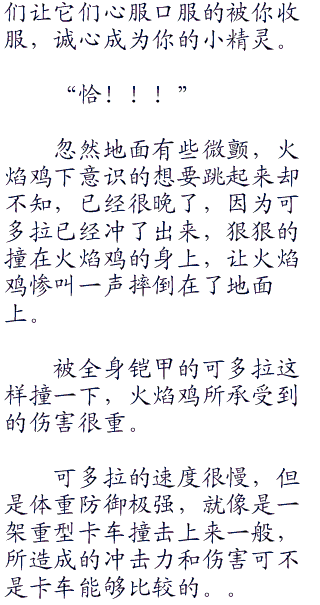 们让它们心服口服的被你收
服，诚心成为你的小精灵。
“恰！！！”
忽然地面有些微颤，火
焰鸡下意识的想要跳起来却
不知，已经很晚了，因为可
多拉已经冲了出来，狠狠的
撞在火焰鸡的身上，让火焰
鸡惨叫一声摔倒在了地面
上。
被全身铠甲的可多拉这
样撞一下，火焰鸡所承受到
的伤害很重。
可多拉的速度很慢，但
是体重防御极强，就像是一
架重型卡车撞击上来一般，
所造成的冲击力和伤害可不
是卡车能够比较的。。